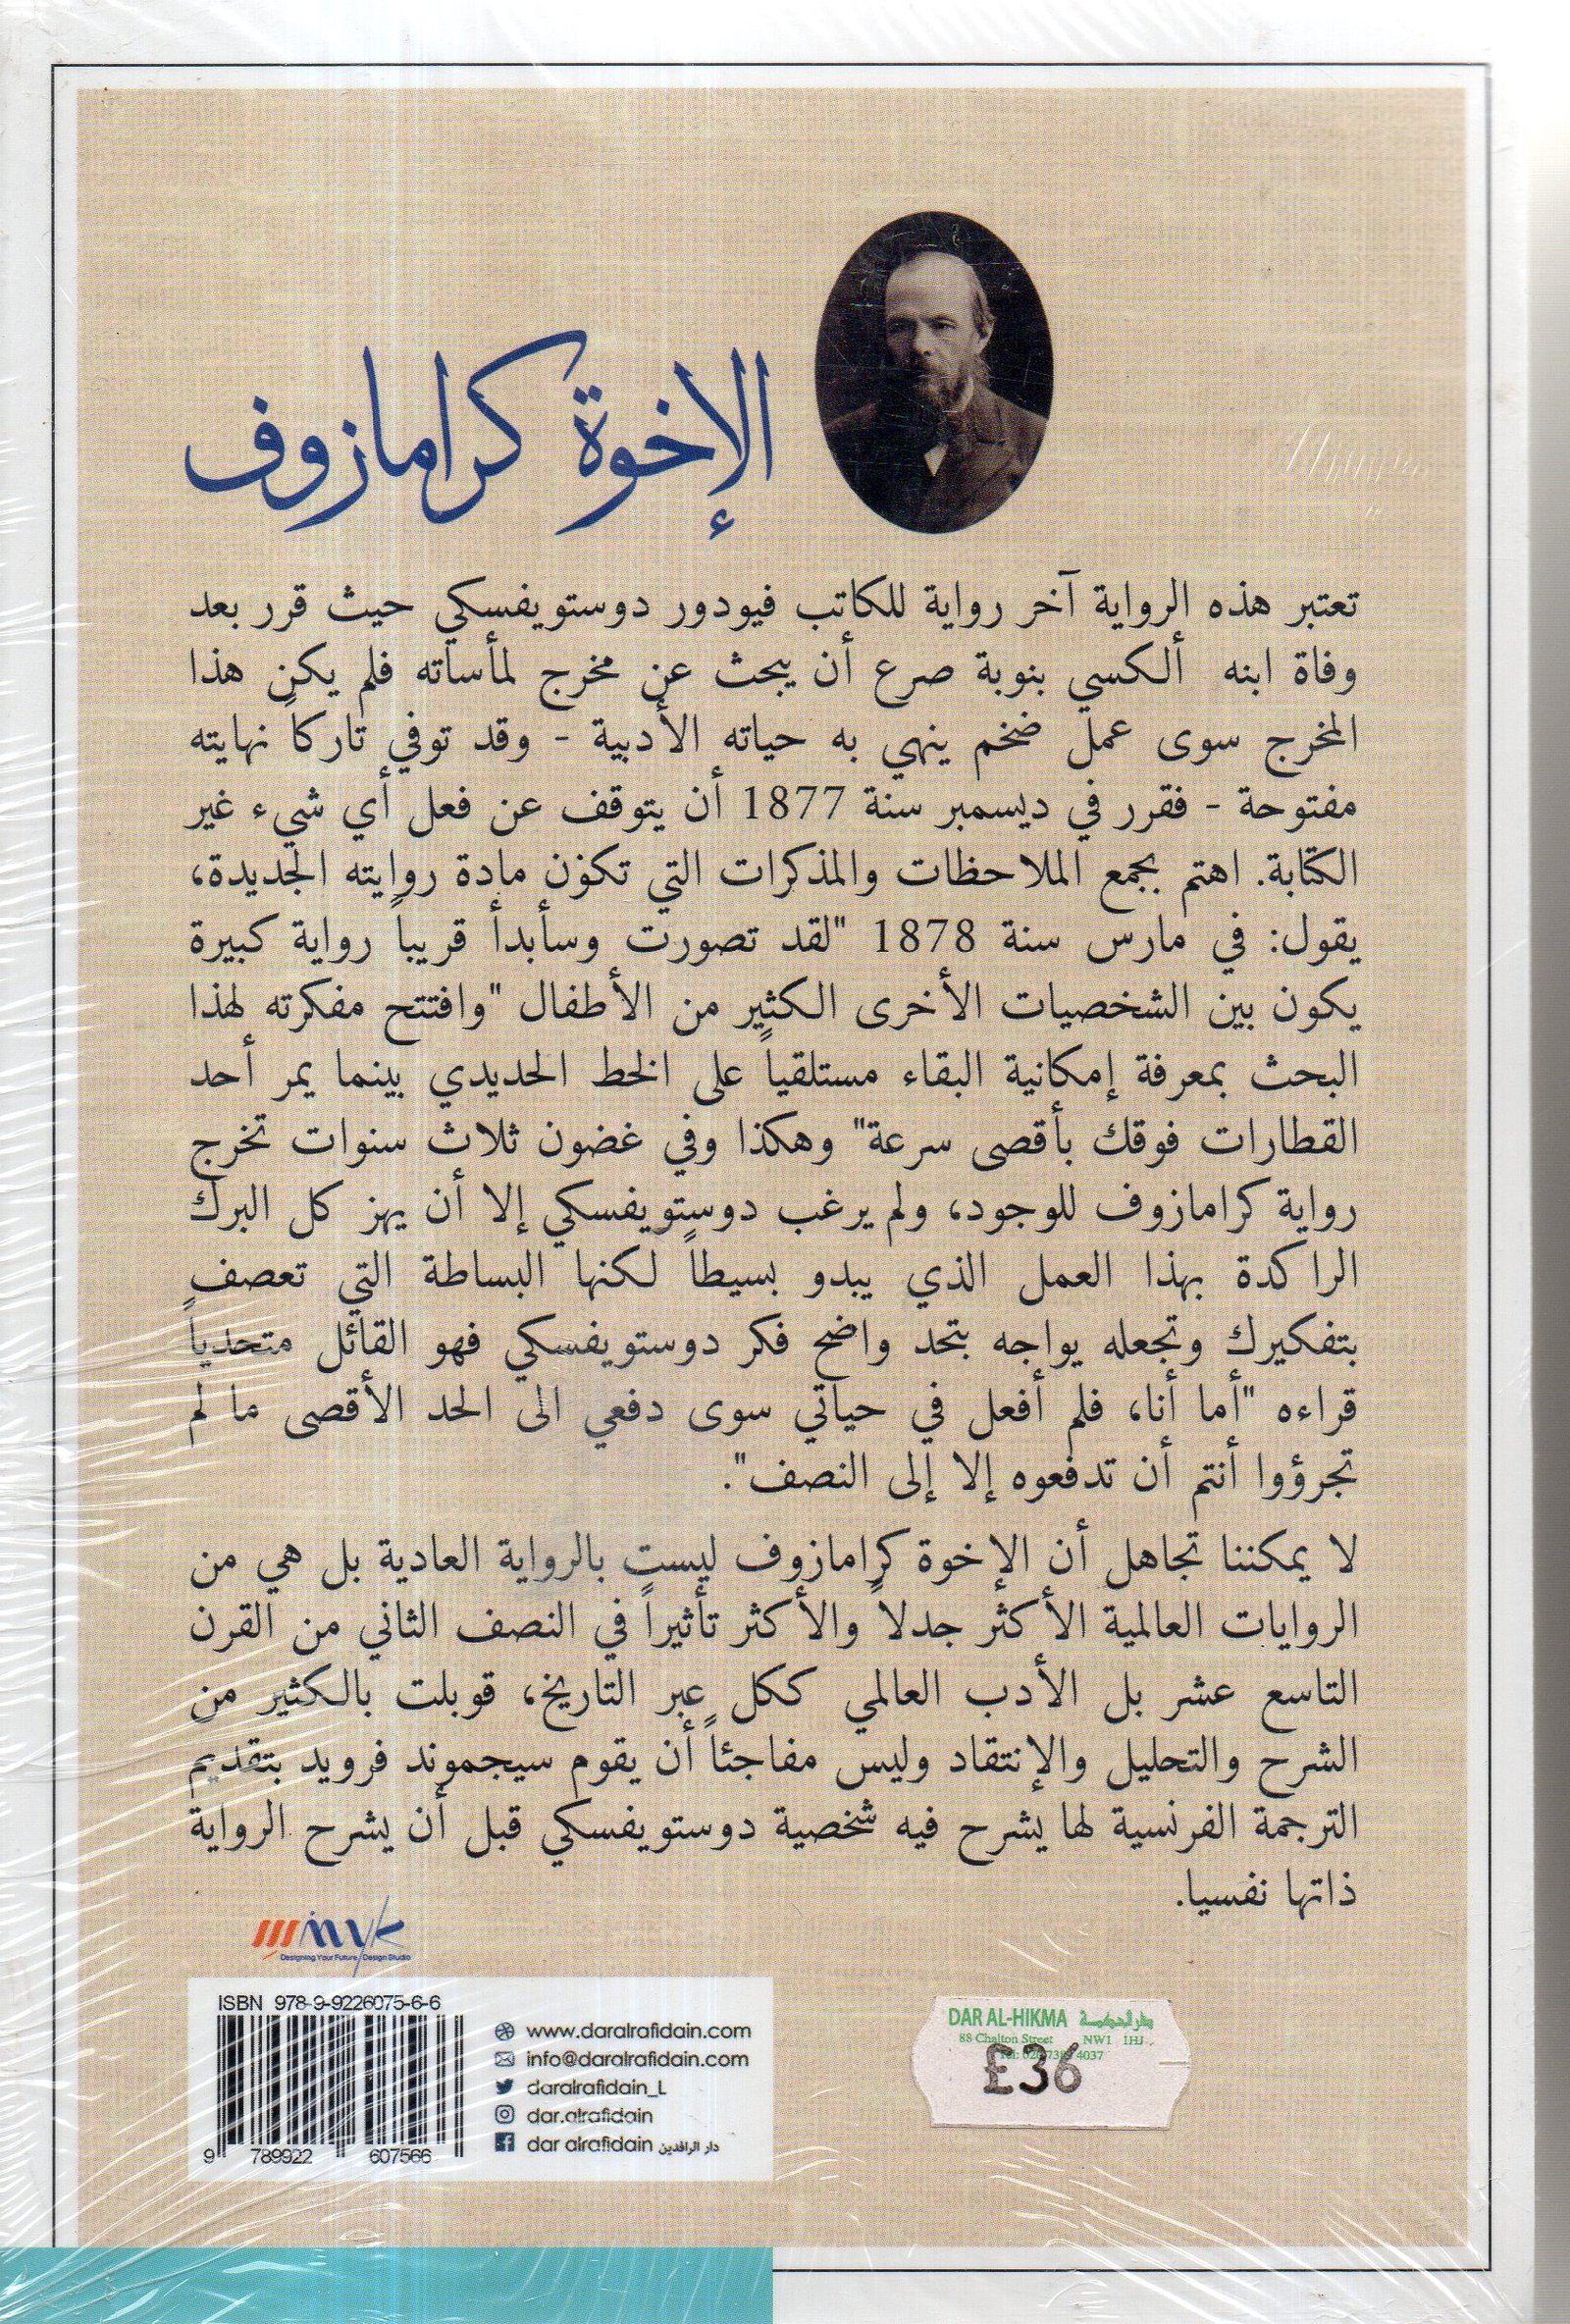 الإخوة كرامازوف
تعتبر هذه الرواية آخر رواية للكاتب فيودور دوستويفسكي حيث قرر بعد
وفاة ابنه ألكسي بنوبة صرع أن يبحث عن مخرج لمأساته فلم يكن هذا
المخرج سوى عمل ضخم ينهي به حياته الأدبية - وقد توفي تاركاً نهايته
مفتوحة - فقرر في ديسمبر سنة 1877 أن يتوقف عن فعل أي شيء غير
الكتابة. اهتم بجمع الملاحظات والمذكرات التي تكون مادة روايته الجديدة،
يقول: في مارس سنة 1878 "لقد تصورت وسأبدأ قريباً رواية كبيرة
يكون بين الشخصيات الأخرى الكثير من الأطفال "وافتتح مفكرته لهذا
البحث بمعرفة إمكانية البقاء مستلقياً على الخط الحديدي بينما يمر أحد
القطارات فوقك بأقصى سرعة" وهكذا وفي غضون ثلاث سنوات تخرج
رواية كرامازوف للوجود، ولم يرغب دوستويفسكي إلا أن يهز كل البرك
الراكدة بهذا العمل الذي يبدو بسيطاً لكنها البساطة التي تعصف
بتفكيرك وتجعله يواجه بتحد واضح فكر دوستويفسكي فهو القائل متحدياً
قراءه "أما أنا، فلم أفعل في حياتي سوى دفعي الى الحد الأقصى ما لم
تجرؤوا أنتم أن تدفعوه إلا إلى النصف".
لا يمكننا تجاهل أن الإخوة كرامازوف ليست بالرواية العادية بل هي من
الروايات العالمية الأكثر جدلاً والأكثر تأثيراً في النصف الثاني من القرن
التاسع عشر بل الأدب العالمي ككل عبر التاريخ، قوبلت بالكثير من
الشرح والتحليل والإنتقاد وليس مفاجئاً أن يقوم سيجموند فرويد بتقديم
الترجمة الفرنسية لها يشرح فيه شخصية دوستويفسكي قبل أن يشرح الرواية
ذاتها نفسيا.
Designing Your Future Design Studio
ISBN 978-9-9226075-6-6
9 789922 607566
www.daralrafidain.com
info@daralrafidain.com
daralrafidain_L
dar.alrafidain
dar alrafidain دار الرافدين
DAR AL-HIKMA دار الحكمة
88 Chalton Street NW1 1HJ
4037
£36